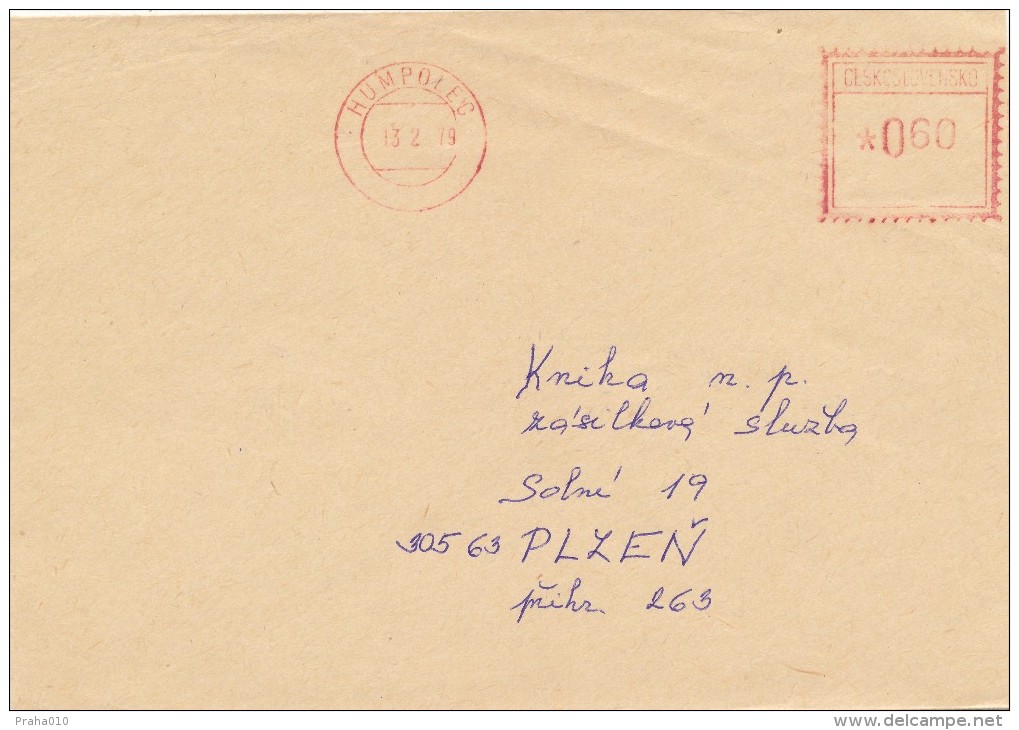 HUMPOLEC
13 2 79
ČESKOSLOVENSKO
*060
Kniha n. p.
zásilková služba
Solní 19
305 63 PLZEŇ
přihr. 263
Praha010
www.delcampe.net